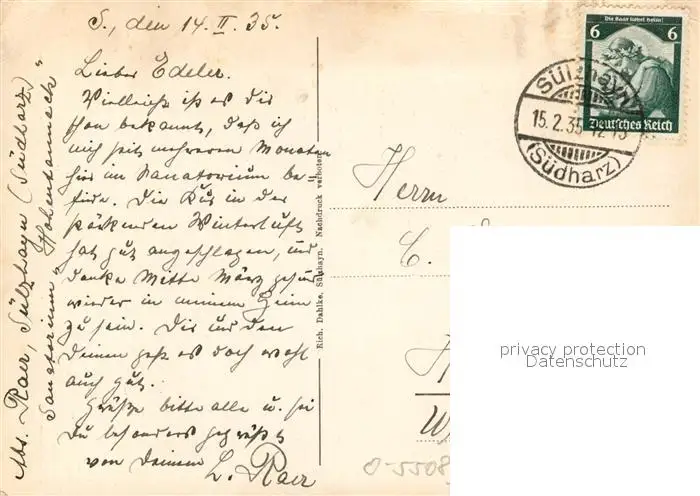 S., den 14. II. 35.
Lieber Edeler.
Vielleicht ist es dir
schon bekannt, daß ich
mich seit mehreren Monaten
hier im Sanatorium be-
finde. Die Kur in der
stärkenden Winterluft
hat gut angeschlagen, und
denke Mitte März gesund
wieder in meinem Heim
zu sein. Dir und den
Deinen geht es doch wohl
auch gut.
Grüße bitte alle u. sei
Du besonders gegrüßt
von Deinem
L. Raer
Abs. Raer, Sülzhayn (Südharz)
Sanatorium "Hohentanneck"
Rich. Dahlke, Sülzhayn. Nachdruck verboten
Die Saar kehrt heim!
6 6
Deutsches Reich
Sülzhayn
15.2.35
(Südharz)
Herrn
C.
W
0-5508
privacy protection
Datenschutz